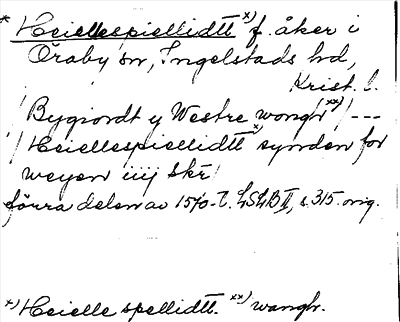 * Heiellespiellidtt x) f. åker i
Öraby sn, Ingelstads hd,
Krist. l.
/Bygiordt y Westre wongh xx)/---
/Heiellespiellidtt x) synden for
weyen iiij skr/
förra delen av 1570-t. LSLB II, s. 315. orig.
x) Heielle spellidtt. xx) wangh.